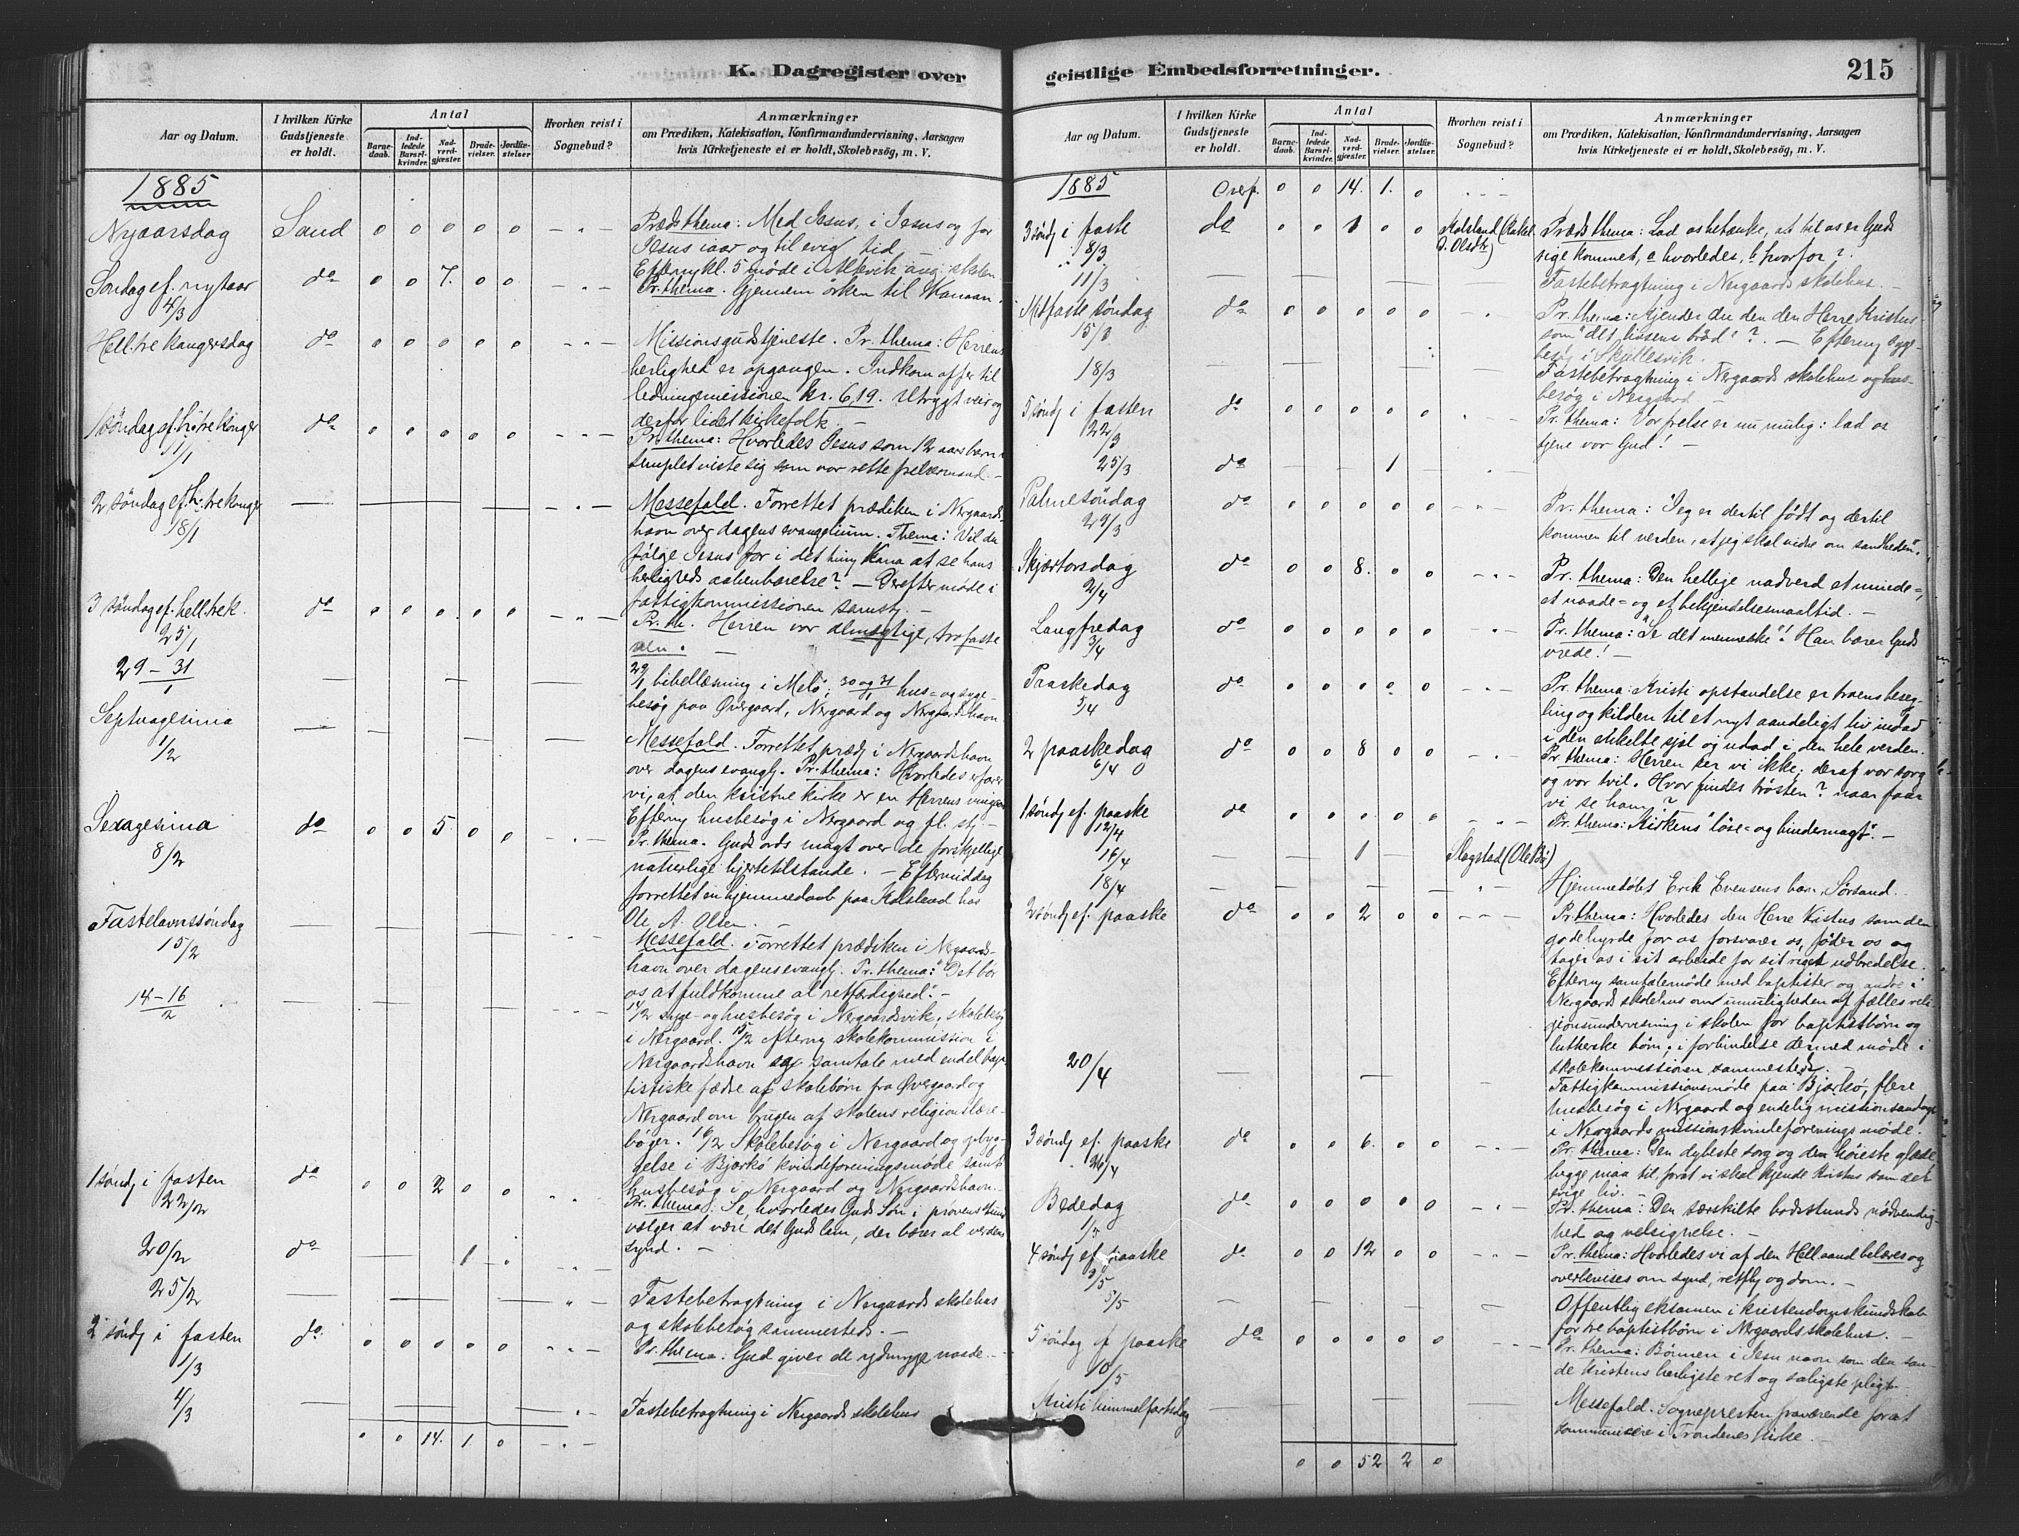 K. Dagregister over
Aar og Datum.
I hvilken Kirke Gudstjeneste er holdt.
Antal
Barnedaab.
Indledede Barselkvinder.
Nadverdgjæster.
Brudevielser.
Jordfæstelser.
Hvorhen reist i Sognebud?
Anmærkninger
om Prædiken, Katekisation, Konfirmandundervisning, Aarsagen
hvis Kirketjeneste ei er holdt, Skolebesøg, m. V.
1885
Nyaarsdag Sand 0 0 0 0 0 Prædsthema: Med Jesus, i Jesus og for
Jesus iaar og til evig tid
Efterny kl. 5 møde i Altevik ang. skolen
Søndag ef. nytaar do 0 0 7. 0 0 Pr. thema. Gjennem ørken til Kanaan.
4/3
Hell. tre kongersdag do 0 0 0 0 0 Missionsgudstjeneste. Pr. thema: Herrens
herlighed er opgangen. Indkom offer til
ledningsmissionen kr. 6,19. Utrygt veir og
derfor lidet kirkefolk. —
1 søndag ef. h. tre konger do 0 0 0 0 0 Pr. thema: Hvorledes Jesus som 12 aars barn i
11/1
templet viste sig som vor rette frelsermand. —
2 søndag ef. h. tre konger Messefald. Forrettet prædiken i Nergaards-
18/1
havn over dagens evangelium. Thema: Vil du
følge Jesus for i det ny Kana at se hans
herligheds aabenbarelse? — Derefter møde i
fattigkommissionen samstj. —
3 søndag ef. hell. tre k. do 0 0 0 0 0 Pr. th. Herren vor almægtige, trofaste
25/1
ven. —
29 – 31
1
29/1 bibellæsning i Melø, 30 og 31/1 hus- og syge-
besøg paa Øvergaard, Nergaard og Nergaardshavn
Septuagesima Messefald. Forrettet prædj i Nergaardshavn
1/2
over dagens evanglj. Pr. thema: Hvorledes erfarer
vi, at den kristne kirke er en Herrens vingaard
Efterny husbesøg i Nergaard og fl. stj. —
Sexagesima do 0 0 5. 0 0 Pr. thema. Guds ords magt over de forskjellige
8/2
naturlige hjertetilstande. — Eftermiddag
forrettet en hjemmedaab paa Kolsland hos
Ole A. Olsen. —
Fastelavnssøndag Messefald. Forrettet prædiken i Nergaards-
15/2
havn over dagens evanglj. Pr. thema: "Det bør
os at fuldkomme al retfærdighed". —
14 – 16
2
14/2 syge- og husbesøg i Nergaardsvik, skolebesøg
i Nergaard. 15/2 Efterny skolekommission i
Nergaardshavn og samtale med endel bap-
tistiske fædre af skolebørn fra Øvergaard og
Nergaard om brugen af skolens religionslære-
bøger. 16/2 Skolebesøg i Nergaard og
gelse i Bjarkø kvindeforeningsmøde samt
husbesøg i Nergaard og Nergaardshavn.
1 søndj i fasten do 0 0 2 0 0 Pr. thema: Se, hvorledes Guds Søn i prøvens stund
22/2
vælger at være det Guds lam, der bærer al verdens
synd. —
20/2 do 1 0
25/2 Fastebetragtning i Nergaards skolehus
og skolebesøg sammesteds. —
2 søndj i fasten do. 0 0 0 0 0 Pr. thema: Gud giver de ydmyge naade. —
1/3
4/3 Fastebetragtning i Nergaards skolehus
0 0 14. 1. 0
geistlige Embedsforretninger.
215
Aar og Datum.
I hvilken Kirke Gudstjeneste er holdt.
Antal
Barnedaab.
Indledede Barselkvinder.
Nadverdgjæster.
Brudevielser.
Jordfæstelser.
Hvorhen reist i Sognebud?
Anmærkninger
om Prædiken, Katekisation, Konfirmandundervisning, Aarsagen
hvis Kirketjeneste ei er holdt, Skolebesøg, m. V.
1885 Overf. 0 0 14. 1. 0
3 søndj i faste do 0 0 1 0 0 Kolsland (Rakel Prædsthema: Lad os betænke, at til os er Guds
8/3 Olsdtr)
rige kommet, a hvorledes, b hvorfor?
11/3 Fastebetragtning i Nergaards skolehus. —
Midfaste søndag do 0 0 0 0 0 Pr. thema: Kjender du den den Herre Kristus
15/3
som "det livsens brød"? — Efterny syge-
besøg i Skjellesvik.
18/3 Fastebetragtning i Nergaards skolehus og hus-
besøg i Nergaard —
5 søndj i fasten do 0 0 0 0 0 Pr. thema: Vor frelse er nu mulig: lad os
22/3
tjene vor Gud! —
25/3 do 1
Palmesøndag do 0 0 0 0 0 Pr. thema: "Jeg er dertil født og dertil
29/3
kommen til verden, at jeg skal vidne om sandheden".
Skjærtorsdag do 0 0 8. 0 0 Pr. thema: Den hellige nadverd et minde-,
2/4
et naade- og et bekjendelsesmaaltid. —
Langfredag do 0 0 0 0 0 Pr. thema: "Se det menneske"! Han bærer Guds
3/4
vrede! —
Paaskedag do 0 0 0 0 0 Pr. thema: Kristi opstandelse er troens beseg-
5/4
ling og kilden til et nyt aandeligt liv indad
i den enkelte sjæl og udad i den hele verden.
2 paaskedag do 0 0 8 0 0 Pr. thema: Herren ser vi ikke; deraf vor sorg
6/4
og vor tvil. Hvor findes trøsten? naar faar
vi se ham?
1 søndj ef. paaske do 0 0 0 0 0 Pr. thema: Kirkens "løse- og bindemagt". —
12/4
16/4 1 Slagstad (Ole )
18/4 Hjemmedøbt Erik Evensens barn, Sørsand. —
2 søndj ef. paaske do 0 0 2 0 0 Pr. thema: Hvorledes den Herre Kistus som den
gode hyrde for os forsvarer os, føder os og
tager os i sit arbeide for sit riges udbredelse.
Efterny samtalemøde med baptister og andre i
Nergaards skolehus om umuligheden af fælles reli-
gionsundervisning i skolen for baptistbørn og
lutherske børn; i forbindelse dermed møde i
skolekommissionen sammesteds. —
20/4 Fattigkommissionsmøde paa Bjarkø, flere
husbesøg i Nergaard og endelig missionsandagt
i Nergaards missionskvindeforenings møde.
3 søndj ef. paaske do 0 0 6. 0 0 Pr. thema: Den dybeste sorg og den høieste glæde
26/4
begge maa til, forat vi skal kjende Kristus som det
evige liv. —
Bededag do 0 0 0 0 0 Pr. thema: Den særskilte bodsstunds nødvendig-
1/5
hed og velsignelse. —
4 søndj ef. paaske do 0 0 12 0 0 Pr. thema: Hvorledes vi af den Hell. aand belæres og
3/5
overbevises om synd, retfj og dom. —
5/5 Offentlig eksamen i kristendomskundskab
for tre baptistbørn i Nergaards skolehus. —
5 søndag ef paaske do 0 0 0 0 0 Pr. thema: Bønnen i Jesu navn som den san-
10/5
de kristens herligste ret og saligste pligt.
Kristi himmelfartsdag Messefald. Sognepresten fraværende forat
kommunicere i Trondenes kirke. —
0 0 52 2 0